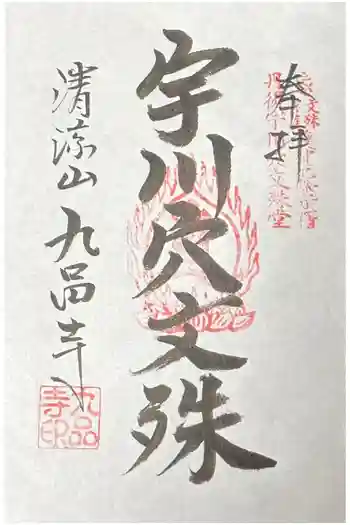 奉拝
宇川穴文殊
清涼山 九品寺
九品
寺印